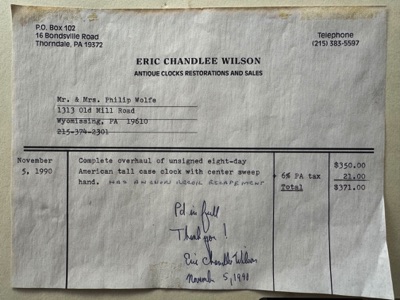 P.O. Box 102
16 Bondsville Road
Thorndale, PA 19372
Telephone
(215) 383-5597
ERIC CHANDLEE WILSON
ANTIQUE CLOCKS RESTORATIONS AND SALES
Mr. & Mrs. Philip Wolfe
1313 Old Mill Road
Wyomissing, PA 19610
215-374-2301
November 5, 1990
Complete overhaul of unsigned eight-day
American tall case clock with center sweep
hand. HAS AN RECOIL ESCAPEMENT
$350.00
6% PA tax 21.00
Total $371.00
Pd in full
Thank you!
Eric Chandlee Wilson
November 5, 1990